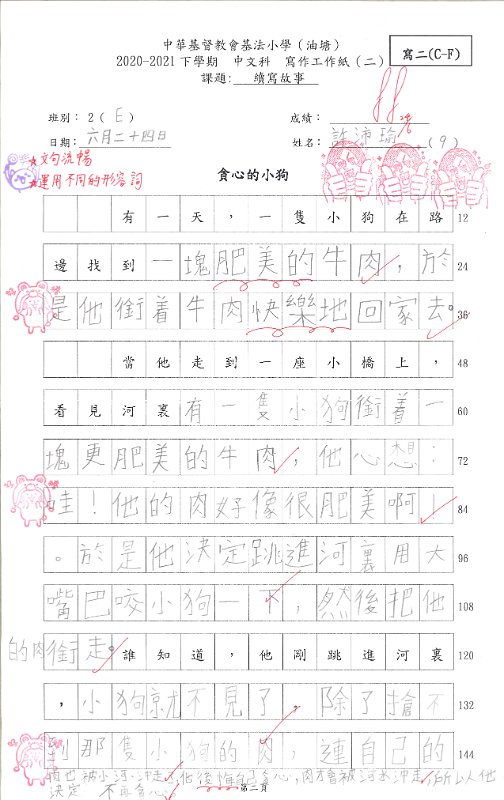 中華基督教會基法小學（油塘）
2020-2021 下學期 中文科 寫作工作紙（二）
寫二(C-F)
課題: 續寫故事
班別：2（E）
成績：
日期：六月二十四日
姓名：許沛瑜（9）
★文句流暢
★運用不同的形容詞
貪心的小狗
有一天，一隻小狗在路 12
邊找到一塊肥美的牛肉，於 24
是他銜着牛肉快樂地回家去。 36
當他走到一座小橋上， 48
看見河裏有一隻小狗銜着一 60
塊更肥美的牛肉，他心想： 72
哇！他的肉好像很肥美啊！ 84
。於是他決定跳進河裏用大 96
嘴巴咬小狗一下，然後把他 108
的肉銜走。誰知道，他剛跳進河裏 120
，小狗就不見了。除了搶不 132
到那隻小狗的肉，連自己的 144
肉也被小河沖走了他後悔自己貪心，肉才會被河水沖走，所以他
決定 不再貪心。
第二頁